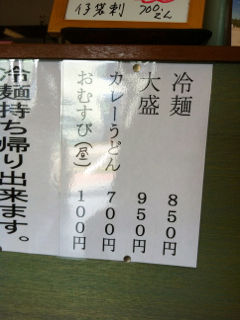 700えん
冷麺 850円
大盛 950円
カレーうどん 700円
おむすび(昼) 100円
冷麺持ち帰り出来ます。